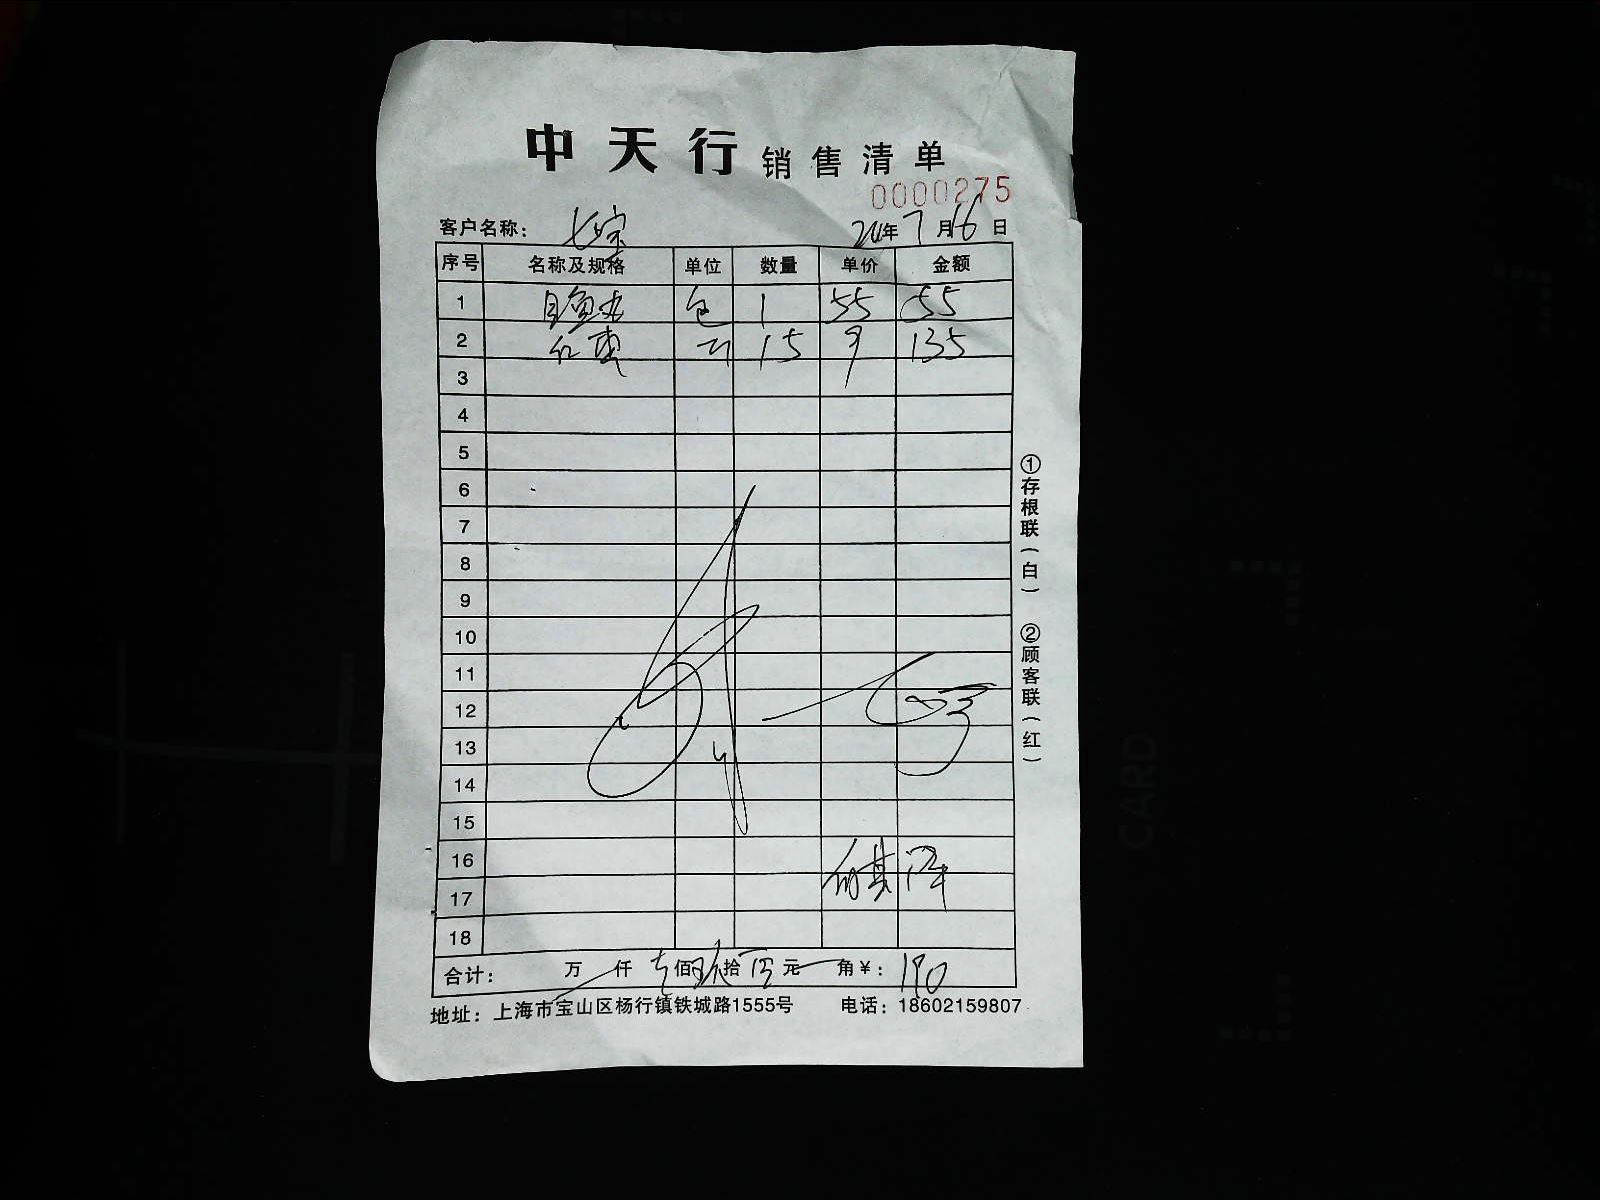 中天行 销售清单
0000275
客户名称： 七宗 年 7 月 16 日
序号 名称及规格 单位 数量 单价 金额
1 包 1 55 55
2 15 9 135
3
4
5
6
7
8
9
10
11
12
13
14
15
16
17
18
合计： 万 仟 佰 玖 拾 元 角 ¥： 190
地址：上海市宝山区杨行镇铁城路1555号 电话：18602159807
①存根联（白） ②顾客联（红）